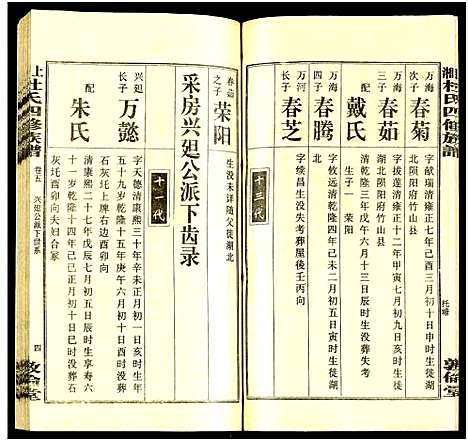 湘上杜氏四修族谱
万海 次子 春菊
字献瑞清雍正七年己酉三月初六日亥时生徙
湖北郧阳府竹山县
万海 三子 春茹
字拔莲清雍正十二年甲寅七月初九日亥时生徙
湖北郧阳府竹山县
配 戴氏
清乾隆三年戊午六月十三日辰时生没葬失考
生子一 荣阳
万海 四子 春腾
字攸远清乾隆四年己未二月初五日寅时生徙湖
万河 长子 春芝
字续昌生没失考葬屋後壬丙向
十三代
敦伦堂
春茹之子 荣阳
生没未详随父徙湖北
采房兴廻公派下齿录
十一代
兴廻 长子 万懿
字天德清康熙三十年辛未十一月初一日丑时生
五十九岁乾隆十五年庚午六月初十日酉时没葬
灰圫大路上右边酉卯向
配 朱氏
清康熙二十七年戊辰七月初五日辰时生享寿六
十一岁乾隆十四年己巳正月初十日戌时没葬
灰圫酉卯向夫妇合冢
上杜氏四修族谱
卷五 兴廻公派下世系
四
敦伦堂